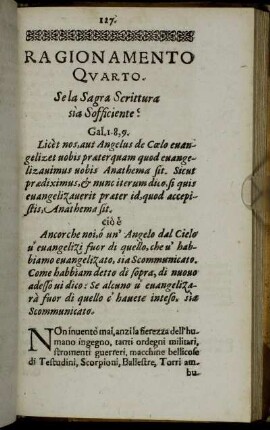 127.
RAGIONAMENTO
QVARTO.
Se la Sagra Scrittura
sia Sofficiente?
Gal. 1. 8. 9.
Licèt nos, aut Angelus de Cœlo euan-
gelizet uobis præter quam quod euange-
lizauimus uobis Anathema sit. Sicut
prædiximus, & nunc iterum dico, si quis
euangelizauerit præter id, quod accepi-
stis, Anathema sit.
ciò è
Ancorche noi, ò un' Angelo dal Cielo
u' euangelizi fuor di quello, che u' hab-
biamo euangelizato, sia Scommunicato.
Come habbiam detto di sopra, di nuouo
adesso ui dico: Se alcuno u' euangeliza-
rà fuor di quello c' hauete inteso, sia
Scommunicato.
NOn inuentò mai, anzi la fierezza dell' hu-
mano ingegno, tanti ordegni militari,
stromenti guerreri, macchine bellicose
di Testudini, Scorpioni, Ballestre, Torri am-
bu-